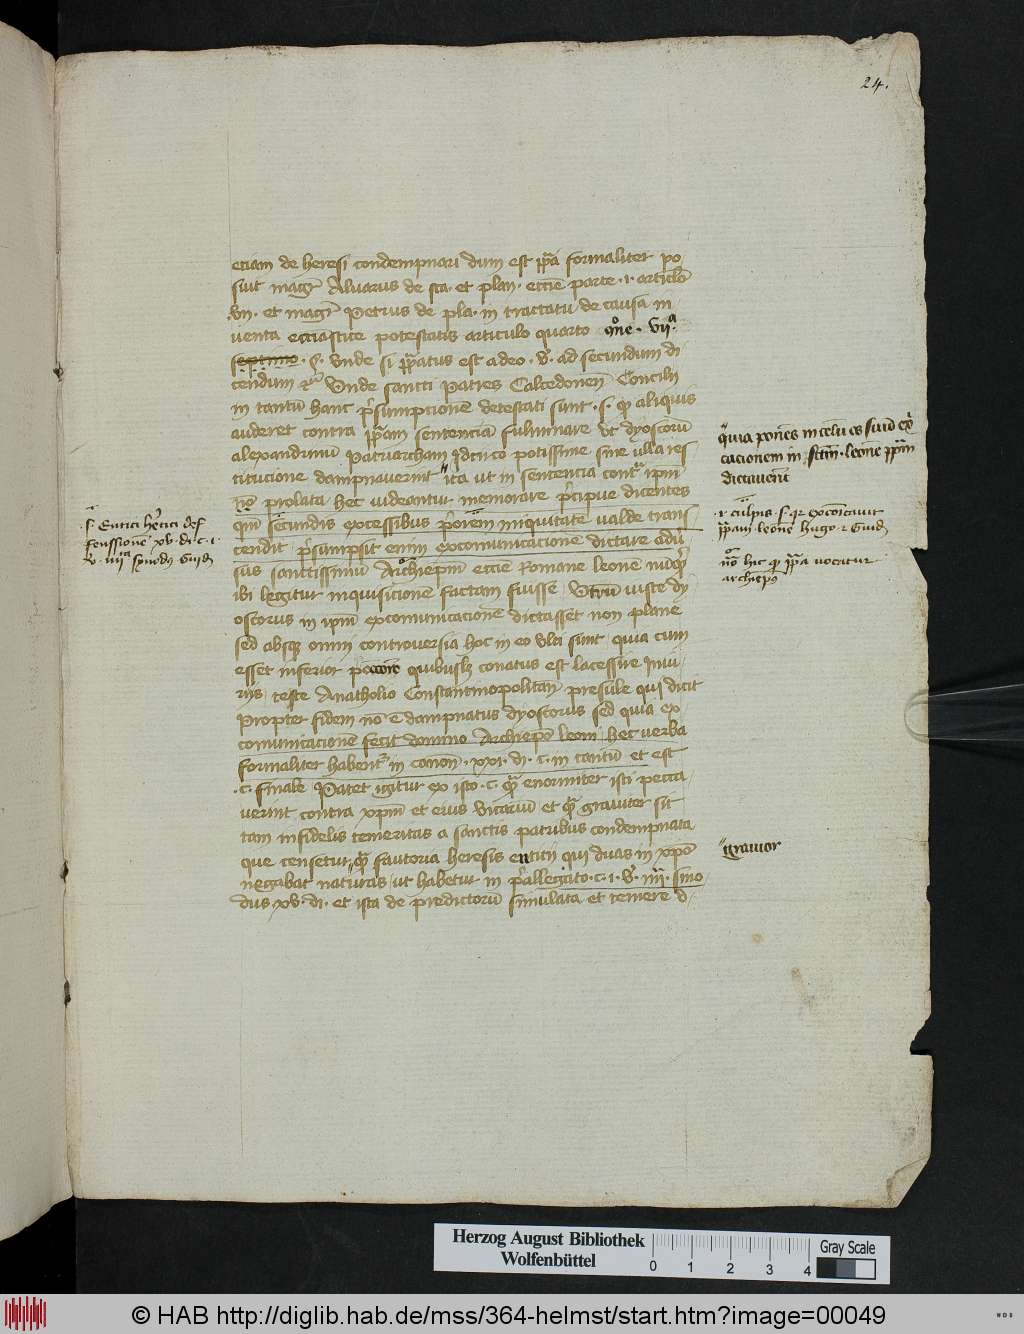 24.
etiam de heresi condempnari dum est ppa formaliter po
suit magr Alvarus de sta. et plan. eccie parte .i. articlo
vii. et magr Petrus de pla. in tractatu de causa in
uenta ecciastice potestatis articulo quarto mone. vii.a
septimo. §. vnde si ppatus est adeo. v. ad secundum di
cendum rc Vnde sancti Patres Calcedonen Concilii
in tantu hanc psumpcione detestati sunt. s. qd aliquis
auderet contra ppam sentencia fulminare vt dyoscoru
alexandrinu Patriarcham idcirco potissime sine ulla res
titucione dampnauerint ita ut in sentencia contra ipm
prolata hec uideantur memorare pcipue dicentes
qm secundis excessibus priorem iniquitate ualde trans
cendit. psumpsit enim excomunicacione dictare adu
sus sanctissimu Archiepm eccie Romane leone
ibi legitur inquisicione factam fuisse. Vtrum iuste dy
oscorus in ipm excomunicacione dictasset non plane
sed absque omni controuersia hoc in eo vlti sunt. quia cum
esset inferior pocore quibuslz conatus est lacessire iniu
riis. teste Anatholio Constantinopolitan presule qui dicit
Propter fidem no e dampnatus dyoscorus sed quia ex
comunicacione fecit domino Archiepo leoni. hec verba
formaliter habentr in canon. xxi. di. c. in tantu et est
.c. finale Patet igitur ex isto .c. qm enormiter isti pecca
uerint contra xpm et eius vicariu et qm grauiter sit
tam infidelis temeritas a sanctis patribus condempnata
que censetur qm fautoria heresis entitii qui duas in xpo
negabat naturas. ut habetur in pallegato. c. i. v. iiii. sino
dus xv. di. et ista de predictoru simulata et temere d
quia pones in celu os suu
cacionem in sctm. leone ppam
dictauerit
i culpis. s. qr excoicauit
ppam leone hugo. Guid
no hic qd ppa vocatur
archiepo
.s. Eutici hetici def
fenssione xv. di. c. i.
v. iiii synodus Guid
grauior
Herzog August Bibliothek
Wolfenbüttel
0 1 2 3 4
Gray Scale
© HAB http://diglib.hab.de/mss/364-helmst/start.htm?image=00049